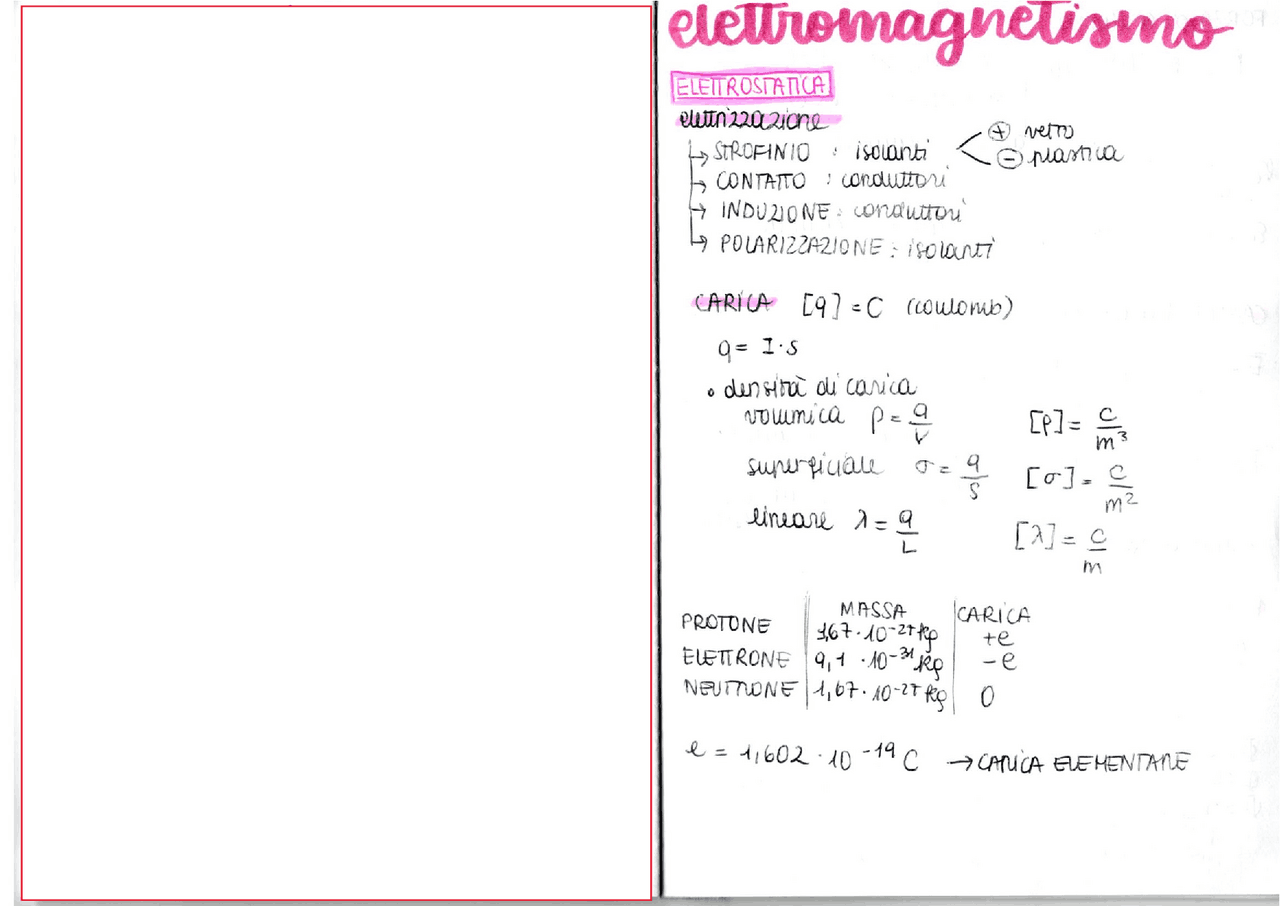 elettromagnetismo
ELETTROSTATICA
elettrizzazione
↳ STROFINIO : isolanti < ⊕ vetro
⊖ plastica
↳ CONTATTO : conduttori
↳ INDUZIONE : conduttori
↳ POLARIZZAZIONE : isolanti
CARICA [q] = C (coulomb)
q = I·s
• densità di carica
volumica ρ = q/V [ρ] = C/m³
superficiale σ = q/S [σ] = C/m²
lineare λ = q/L [λ] = C/m
MASSA CARICA
PROTONE 1,67·10⁻²⁷ kg +e
ELETTRONE 9,1·10⁻³¹ kg -e
NEUTRONE 1,67·10⁻²⁷ kg 0
e = 1,602·10⁻¹⁹ C → CARICA ELEMENTARE